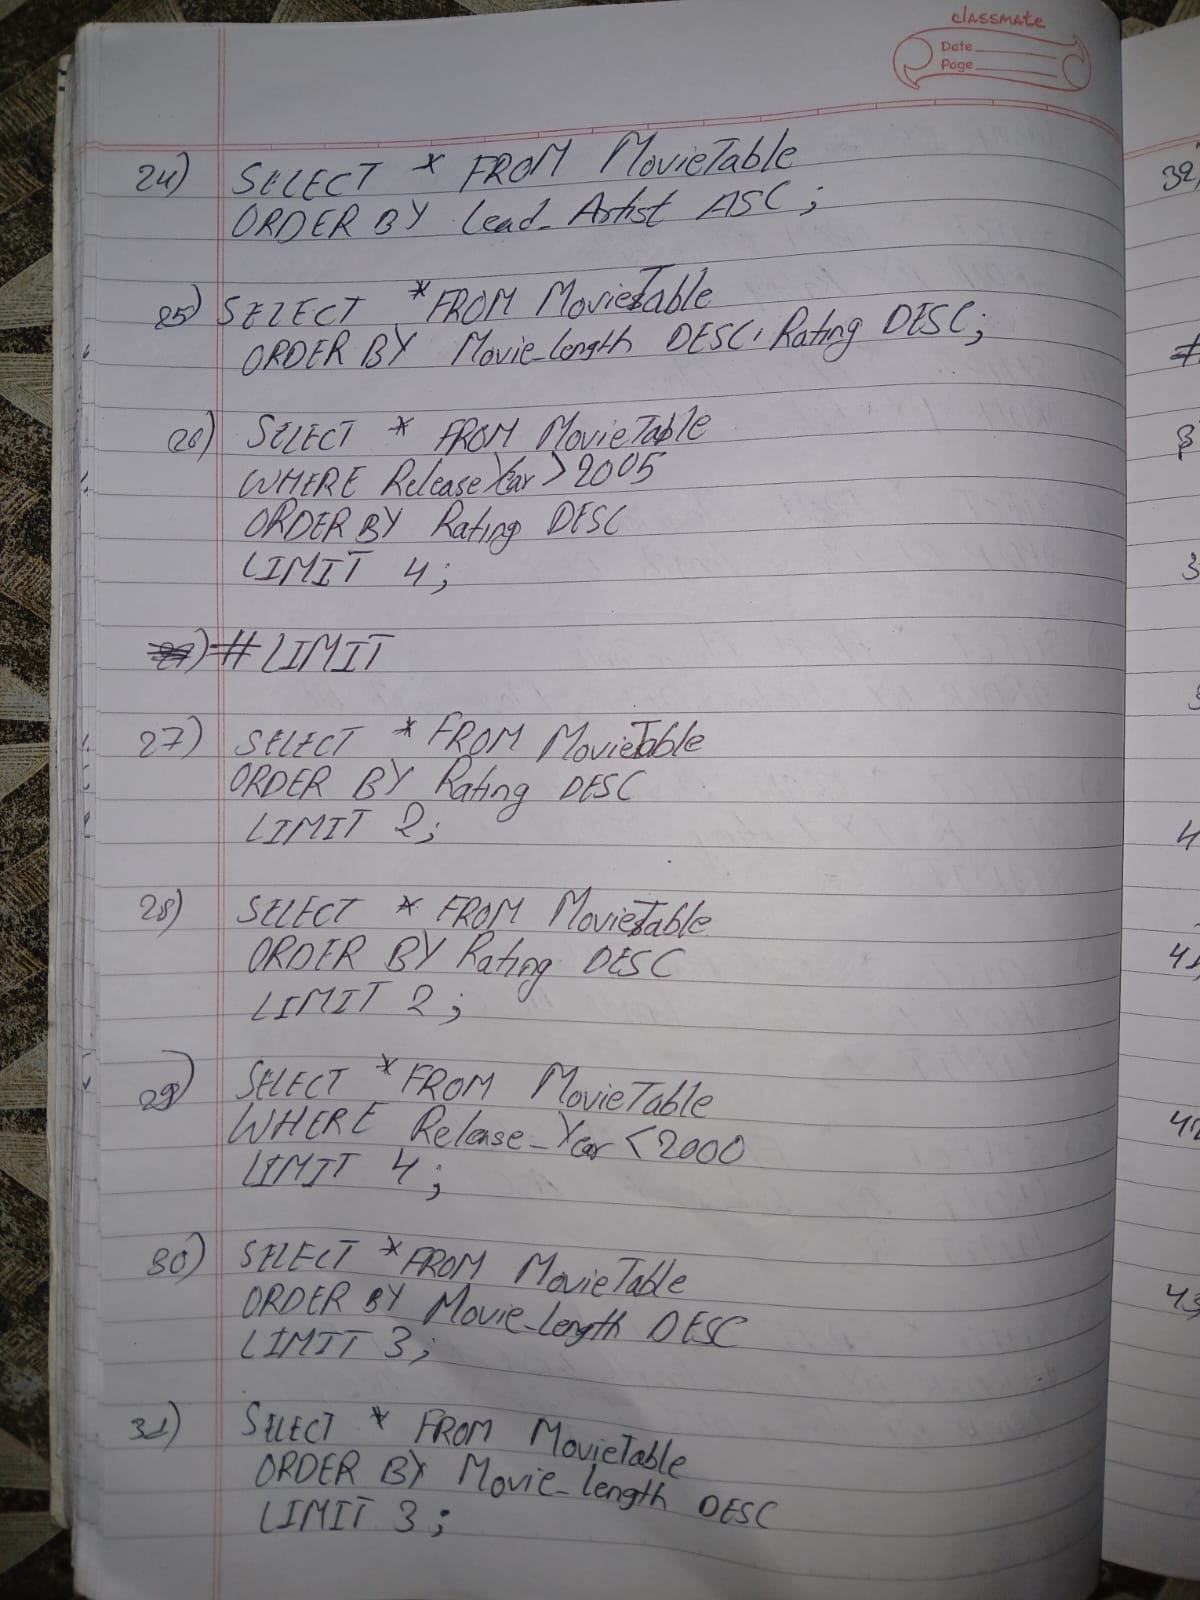 classmate
Date
Page
24) SELECT * FROM MovieTable
ORDER BY Lead_Artist ASC;
25) SELECT * FROM MovieTable
ORDER BY Movie_length DESC, Rating DESC;
26) SELECT * FROM MovieTable
WHERE ReleaseYear > 2005
ORDER BY Rating DESC
LIMIT 4;
# LIMIT
27) SELECT * FROM MovieTable
ORDER BY Rating DESC
LIMIT 2;
28) SELECT * FROM MovieTable
ORDER BY Rating DESC
LIMIT 2;
29) SELECT * FROM MovieTable
WHERE Release_Year < 2000
LIMIT 4;
30) SELECT * FROM MovieTable
ORDER BY Movie_length DESC
LIMIT 3;
31) SELECT * FROM MovieTable
ORDER BY Movie_length DESC
LIMIT 3;
32)
41)
42
43)